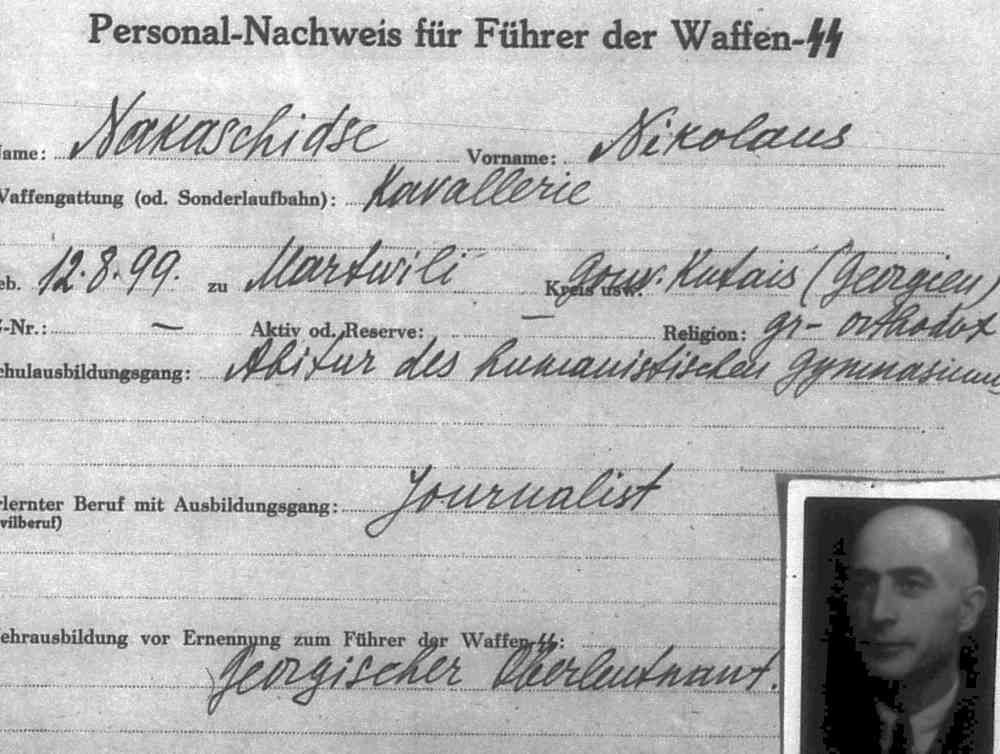 Personal-Nachweis für Führer der Waffen-SS
ame: Nakaschidse Vorname: Nikolaus
Waffengattung (od. Sonderlaufbahn): Kavallerie
eb. 12.8.99. zu Martwili Kreis usw. Gouv. Kutais (Georgien)
-Nr.: — Aktiv od. Reserve: — Religion: gr- orthodox
chulausbildungsgang: Abitur des humanistischen Gymnasiums
lernter Beruf mit Ausbildungsgang: Journalist
vilberuf)
ehrausbildung vor Ernennung zum Führer der Waffen-SS:
Georgischer Oberleutnant.